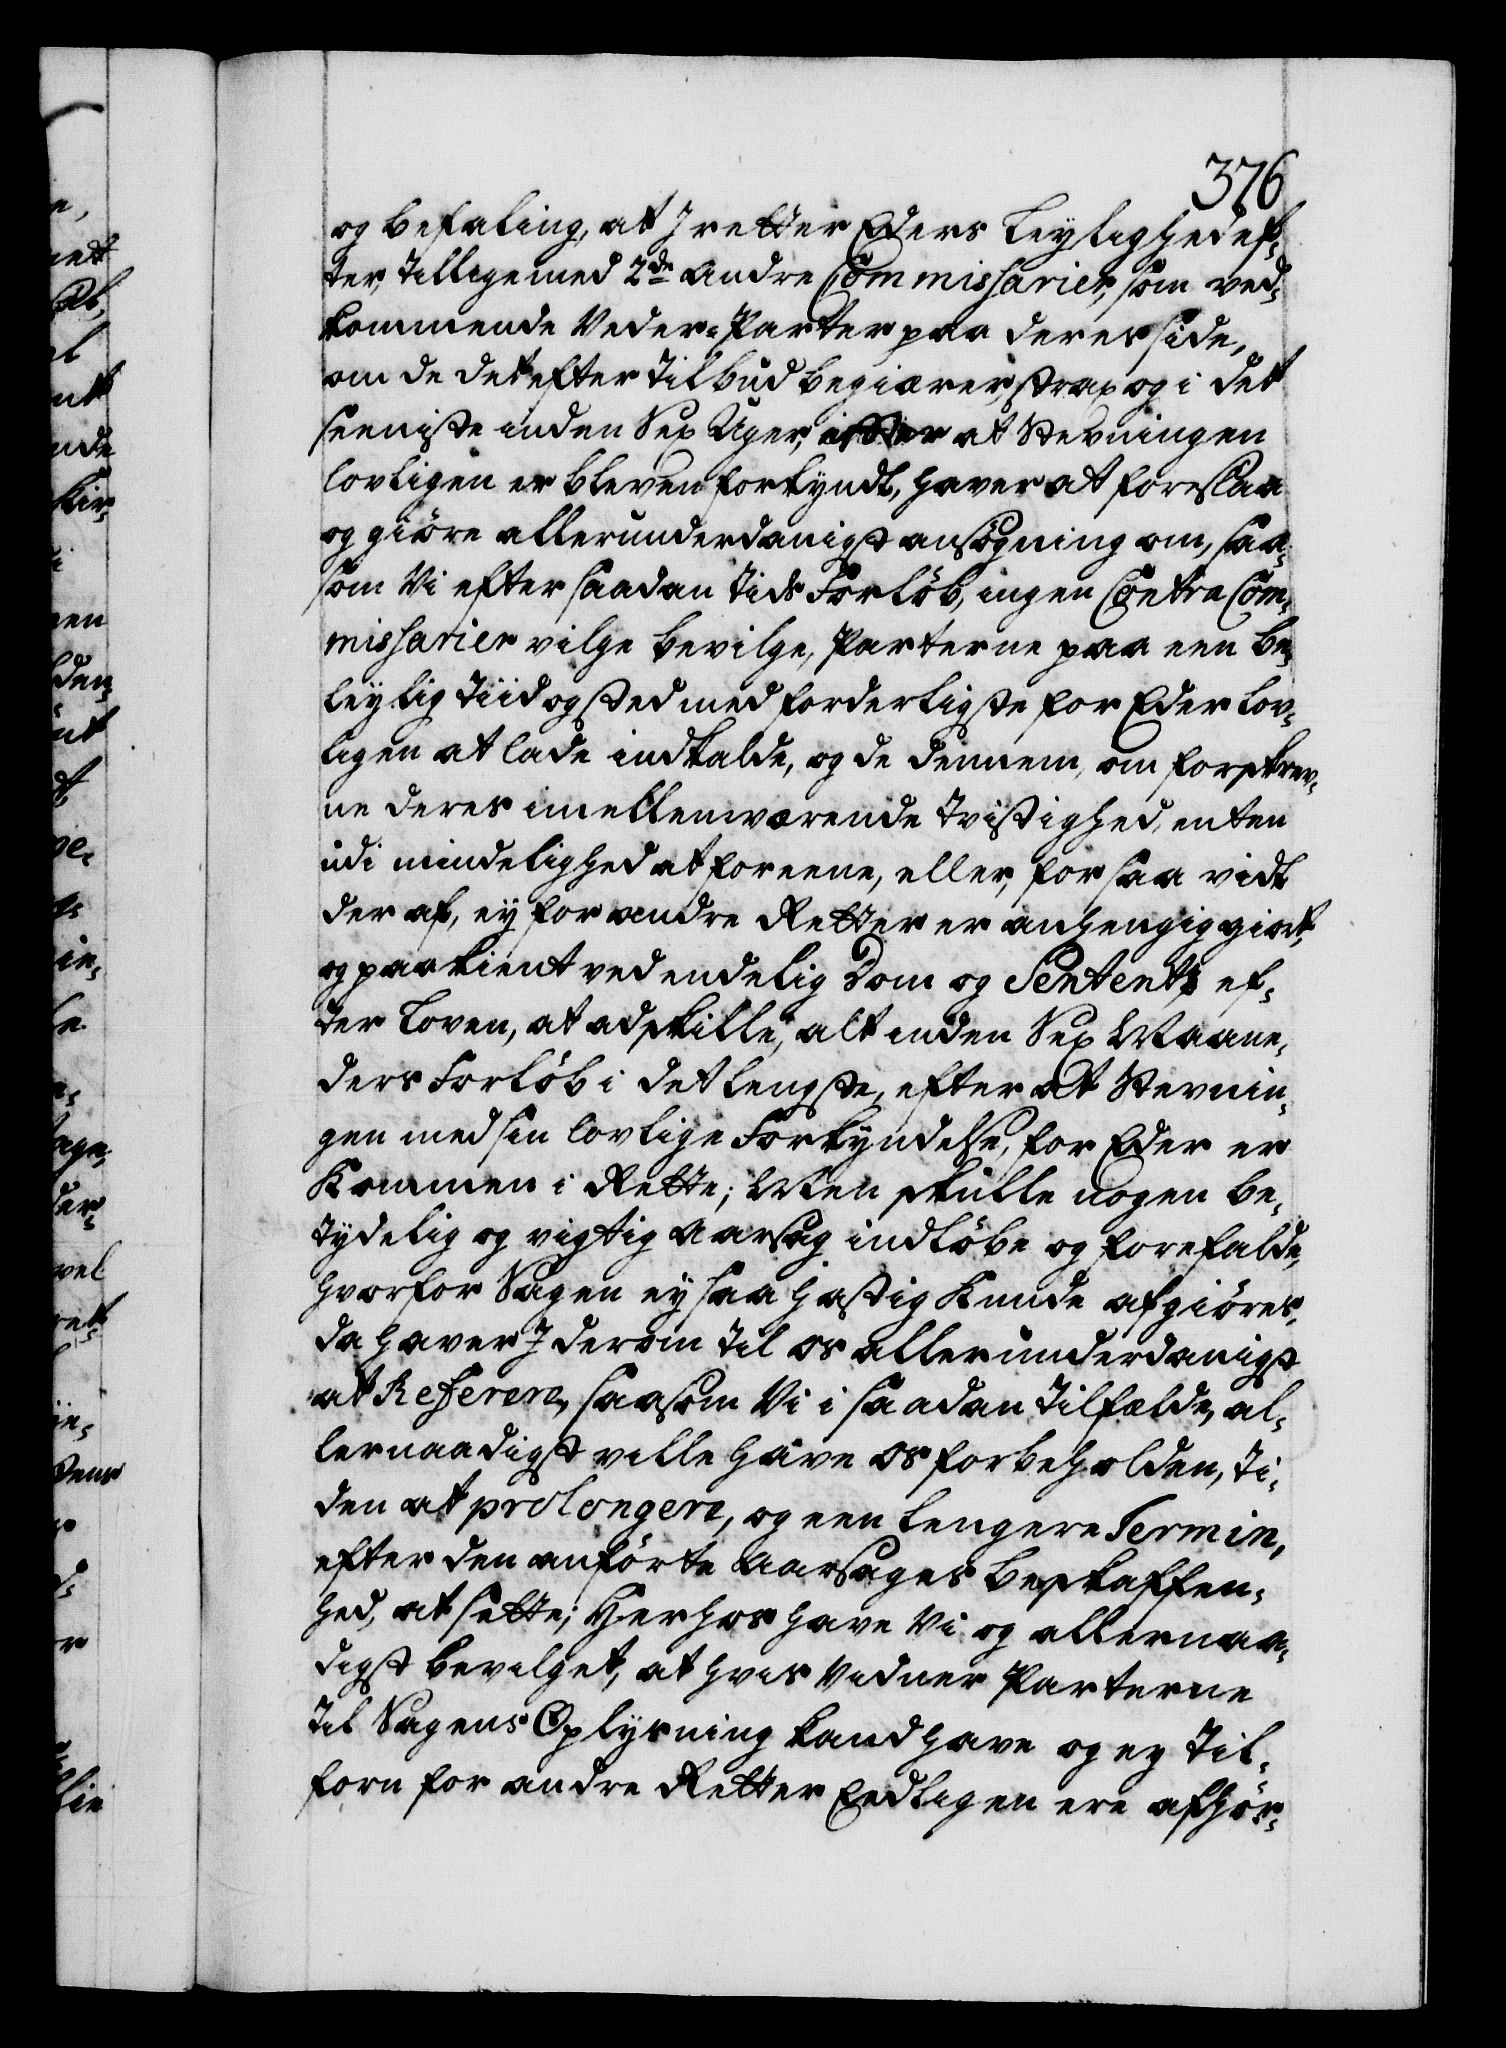 376
og befaling, at I retter Eders Leylighed ef-
ter, tilligemed 2de andre Commissarier, som ved-
kommende Veder-Parter paa deres side,
om de det efter tilbud begiærer, strax og i det
seeniste inden Sex Uger, efter at Stevningen
lovligen er bleven forkyndt, haver at foreslaa
og giøre allerunderdanigst ansøgning om, saa-
som Vi efter saadan tids Forløb, ingen Contra Com-
missarier vilge bevilge, Parterne paa een be-
leylig tiid og sted med forderligste for Eder lov-
ligen at lade indkalde, og de dennem, om forskrev-
ne deres imellemværende tvistighed, enten
udi mindelighed at foreene, eller, for saa vidt
der af, ey for andre Retter er anhengig giort,
og paakient ved endelig Dom og Sententz ef-
ter Loven, at adskille, alt inden Sex Maane-
ders Forløb i det lengste, efter at Stevnin-
gen med sin lovlige Forkyndelse, for Eder er
Kommen i Rette; Men skulle nogen be-
tydelig og vigtig aarsag indløbe og forefalde,
hvorfor Sagen ey saa hastig Kunde afgiøres,
da haver I derom til os allerunderdanigst
at Referere, saasom Vi i saadan tilfælde, al-
lernaadigst ville have os forbeholden, Ti-
den at prolongere, og een lengere Termin,
efter den anførte aarsages beskaffen-
hed, at sette; Herhos have Vi og allernaa-
digst bevilget, at hvis Vidner Parterne
til Sagens Oplysning kand have og ey til-
forn for andre Retter Eedligen ere afhør-